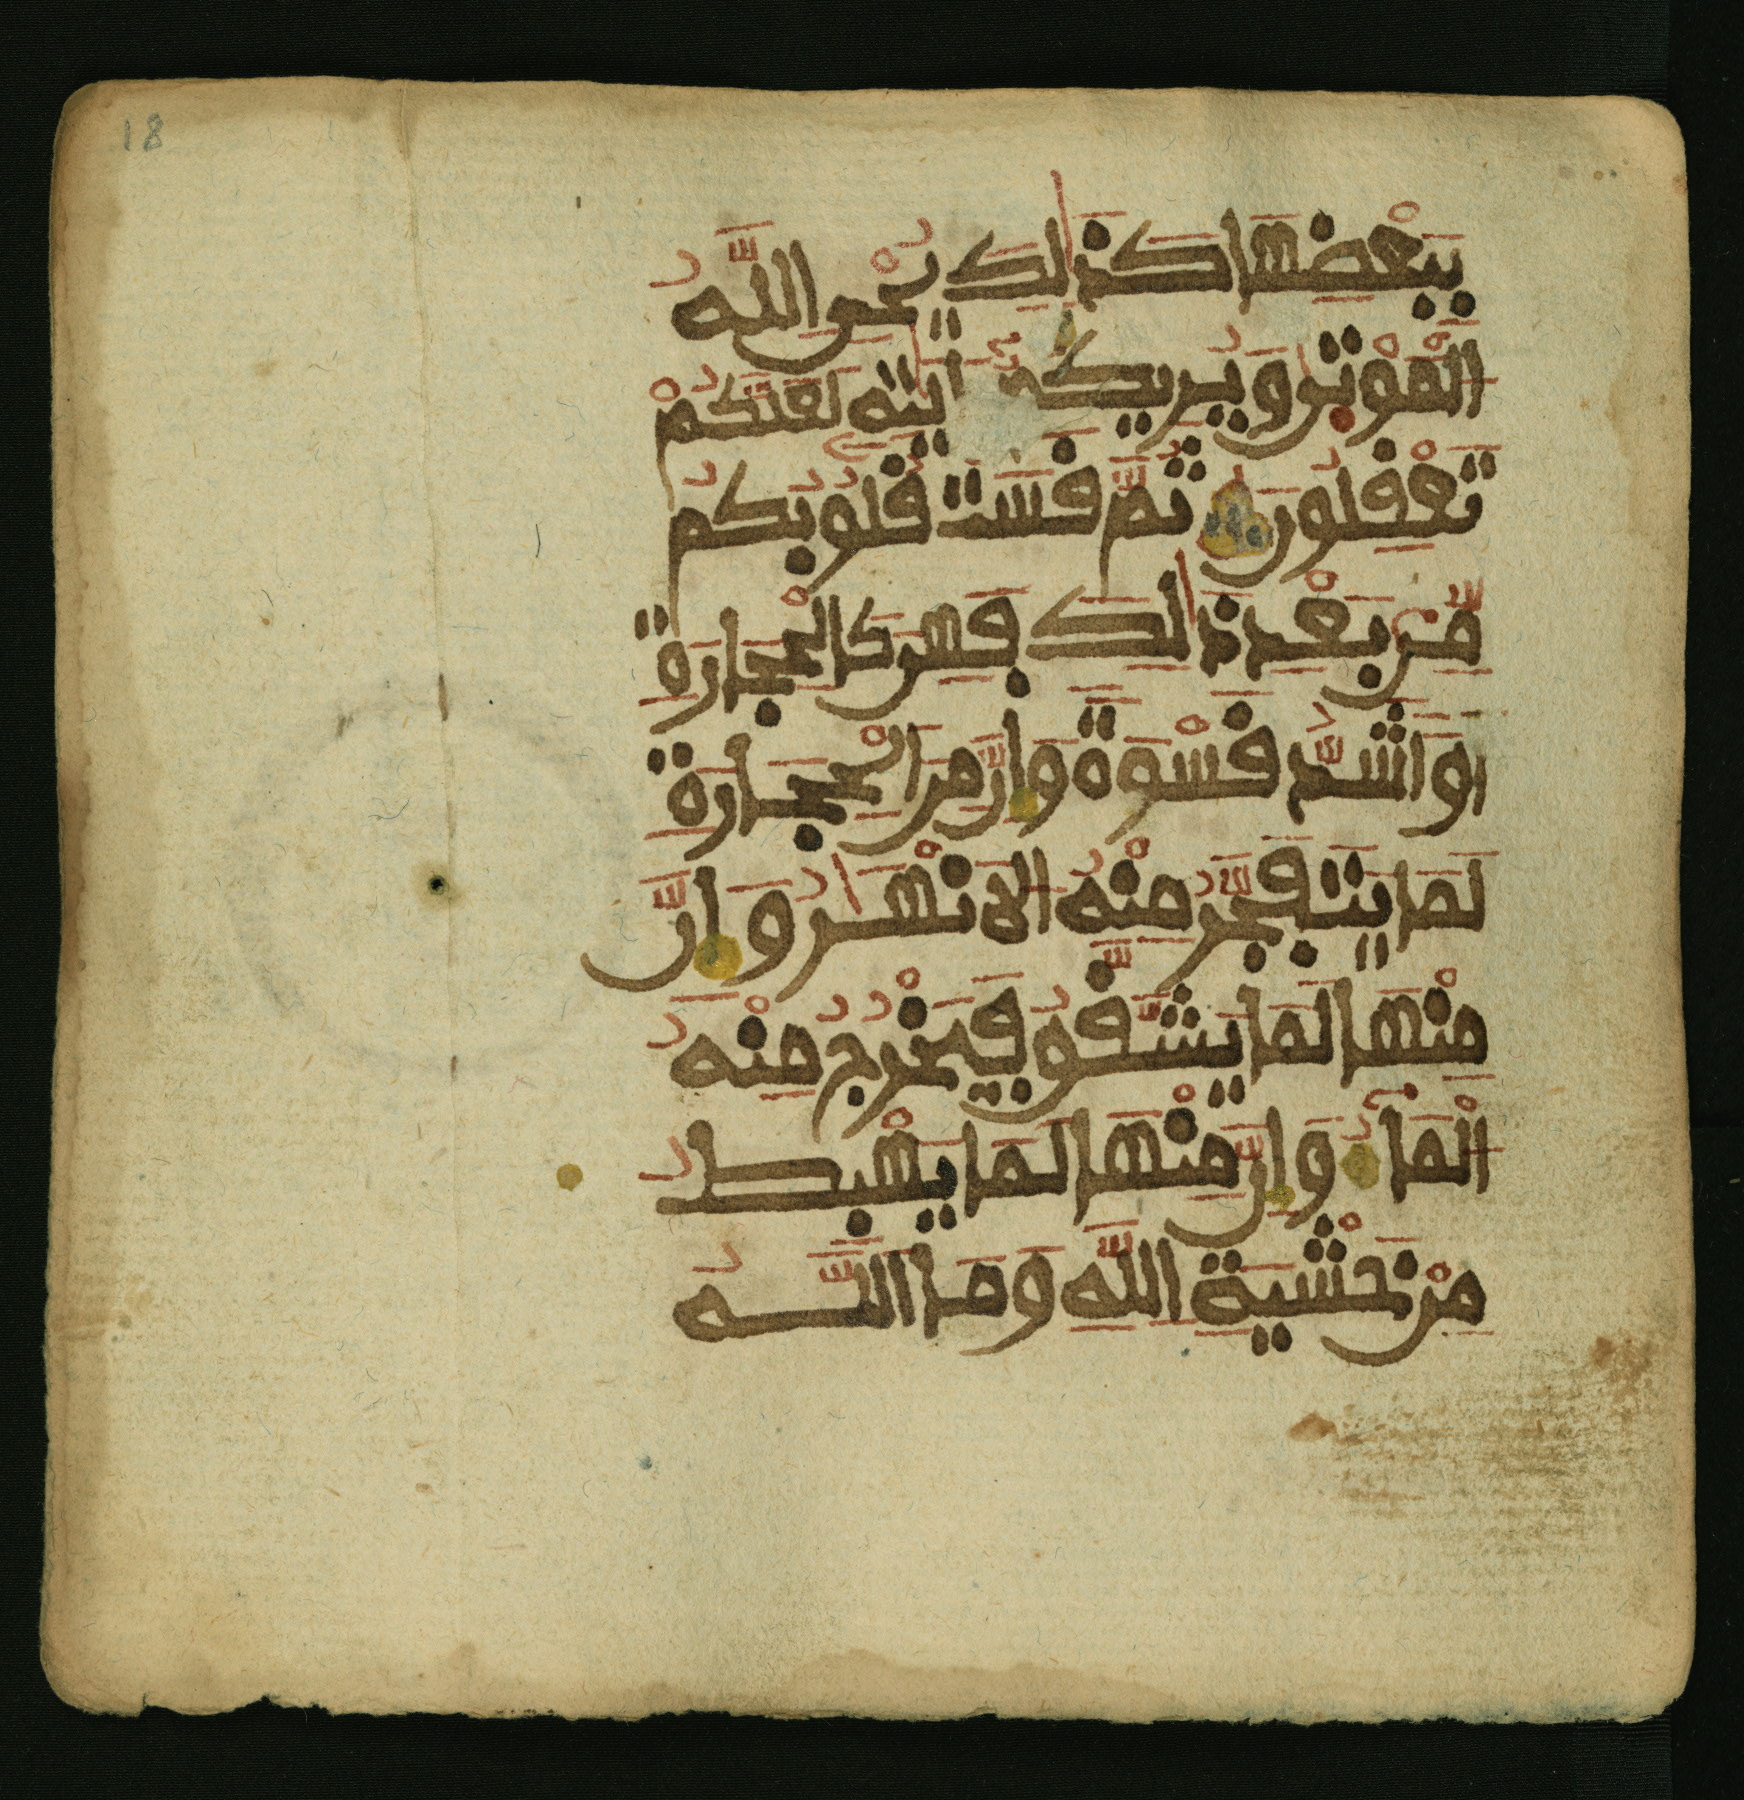 18
بِبَعْضِهَا كَذَٰلِكَ يُحْيِ اللَّهُ
الْمَوْتَىٰ وَيُرِيكُمْ ءَايَٰتِهِ لَعَلَّكُمْ
تَعْقِلُونَ ثُمَّ قَسَتْ قُلُوبُكُم
مِّنْ بَعْدِ ذَٰلِكَ فَهِيَ كَالْحِجَارَةِ
أَوْ أَشَدُّ قَسْوَةً وَإِنَّ مِنَ الْحِجَارَةِ
لَمَا يَتَفَجَّرُ مِنْهُ الْأَنْهَٰرُ وَإِنَّ
مِنْهَا لَمَا يَشَّقَّقُ فَيَخْرُجُ مِنْهُ
الْمَاءُ وَإِنَّ مِنْهَا لَمَا يَهْبِطُ
مِنْ خَشْيَةِ اللَّهِ وَمَا اللَّهُ